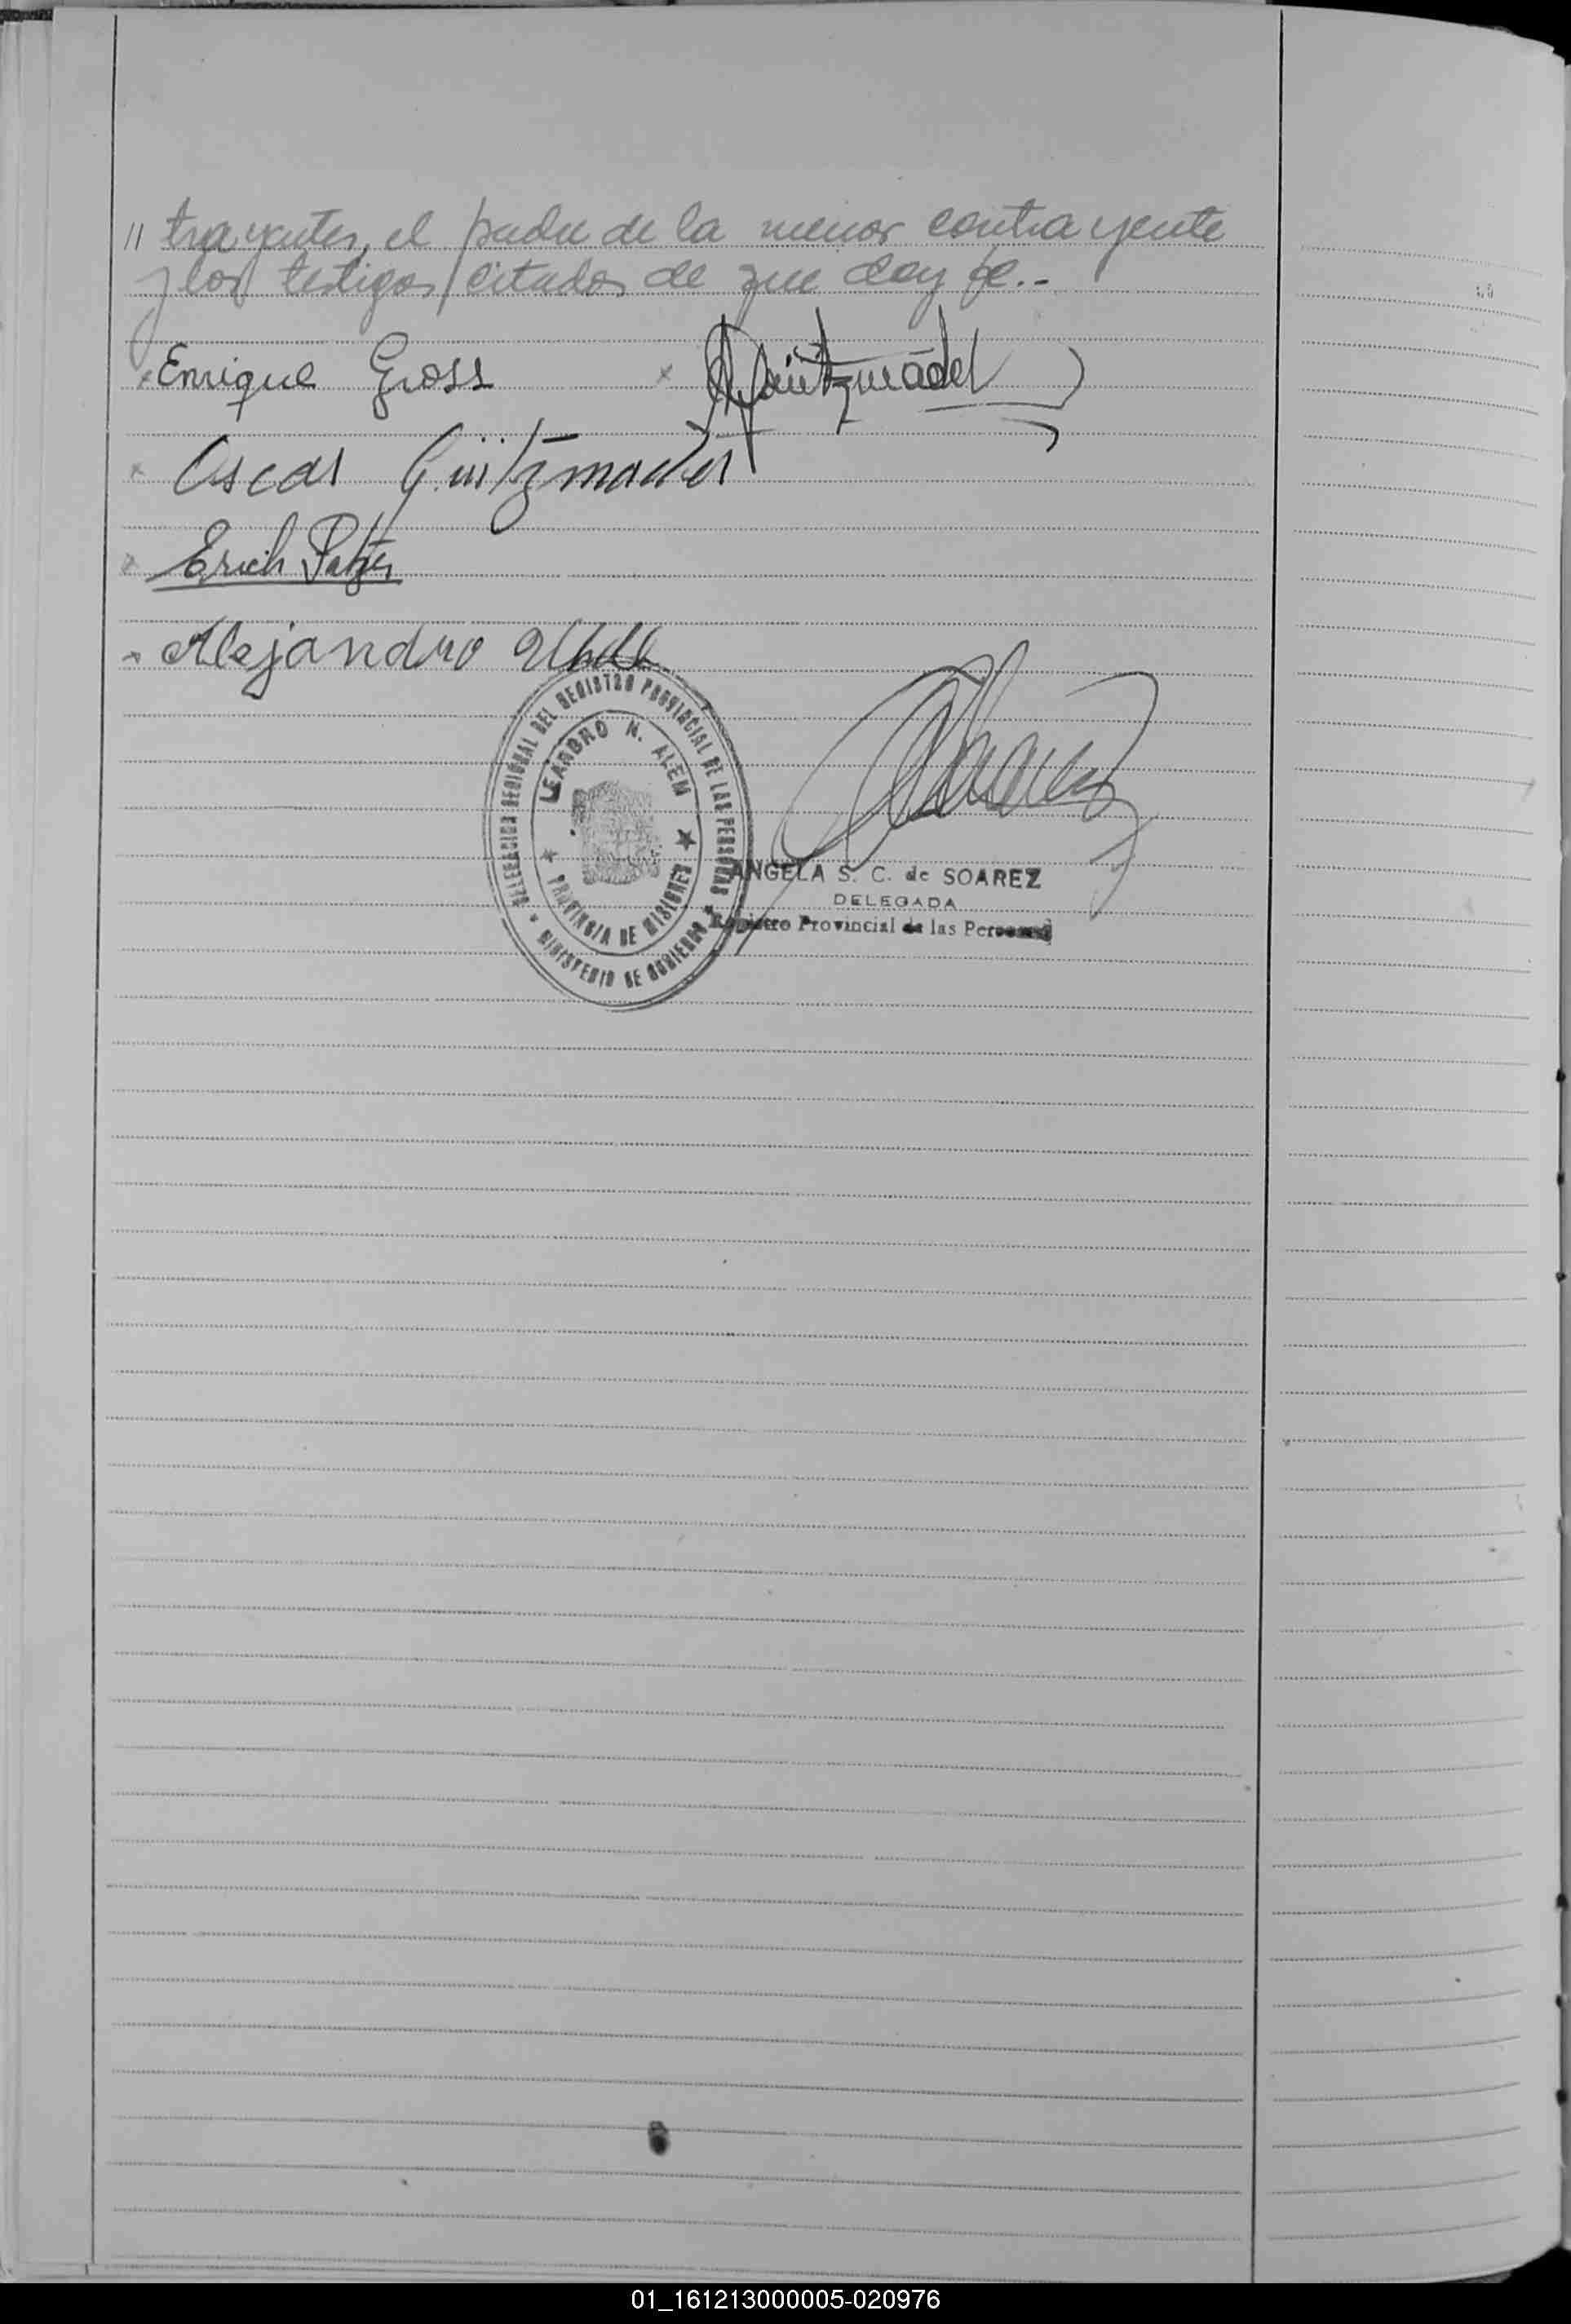 // trayentes, el padre de la menor contrayente
y los testigos citados de que doy fe.-
x Enrique Gross x Gützmädel
x Oscar Gützmadel
x Erich
x Alejandro
DELEGACION REGIONAL DEL REGISTRO PROVINCIAL DE LAS PERSONAS
LEANDRO N. ALEM
PROVINCIA DE MISIONES
MINISTERIO DE GOBIERNO
ANGELA S. C. de SOAREZ
DELEGADA
Registro Provincial de las Personas
01_161213000005-020976